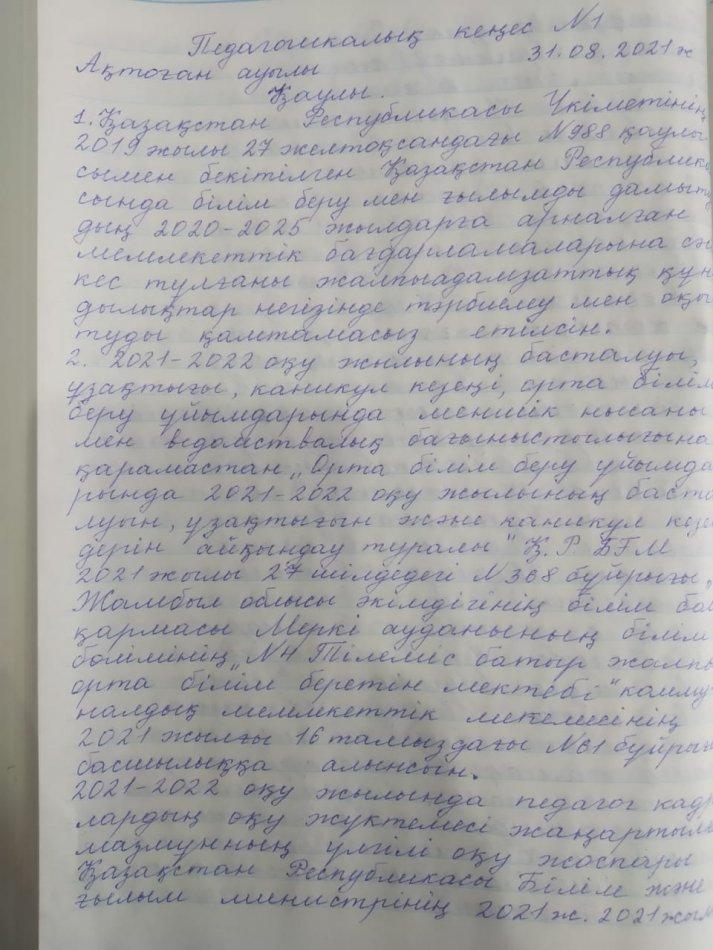 Педагогикалық кеңес №1
Ақтоған ауылы 31.08.2021ж
Қаулы.
1. Қазақстан Республикасы Үкіметінің
2019 жылы 27 желтоқсандағы №988 қаулы
сымен бекітілген Қазақстан Республика
сында білім беру мен ғылымды дамыту
дың 2020-2025 жылдарға арналған
мемлекеттік бағдарламаларына сә
кес тұлғаны жалпыадамзаттық құн
дылықтар негізінде тәрбиелеу мен оқы
туды қамтамасыз етілсін.
2. 2021-2022 оқу жылының басталуы,
ұзақтығы, каникул кезеңі, орта білім
беру ұйымдарында меншік нысаны
мен ведомствалық бағыныстылығына
қарамастан „Орта білім беру ұйымда
рында 2021-2022 оқу жылының баста
луын, ұзақтығын және каникул кезе
дерін айқындау туралы" Қ.Р. БҒМ
2021 жылы 27 шілдедегі №368 бұйрығы,
Жамбыл облысы әкімдігінің білім бас
қармасы Меркі ауданының білім
бөлімінің „№4 Тілеміс батыр жалпы
орта білім беретін мектебі" комму
налдық мемлекеттік мекемесінің
2021 жылғы 16 тамыздағы №61 бұйрығы
басшылыққа алынсын.
2021-2022 оқу жылында педагог кадр
лардың оқу жүктемесі жаңартылғ
мазмұнның үлгілі оқу жоспары
Қазақстан Республикасы Білім және
ғылым министрінің 2021ж. 2021 жыл